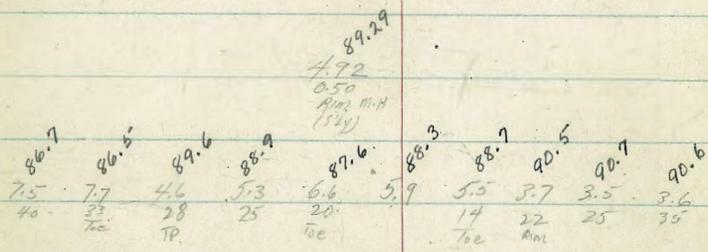 89.29
4.92
0.50
Rim M.H
(S'ly)
86.7 86.5 89.6 88.9 87.6 88.3 88.7 90.5 90.7 90.6
7.5 7.7 4.6 5.3 6.6 5.9 5.5 3.7 3.5 3.6
40 33 28 25 20 14 22 25 35
Toe TP. Toe Toe Rim